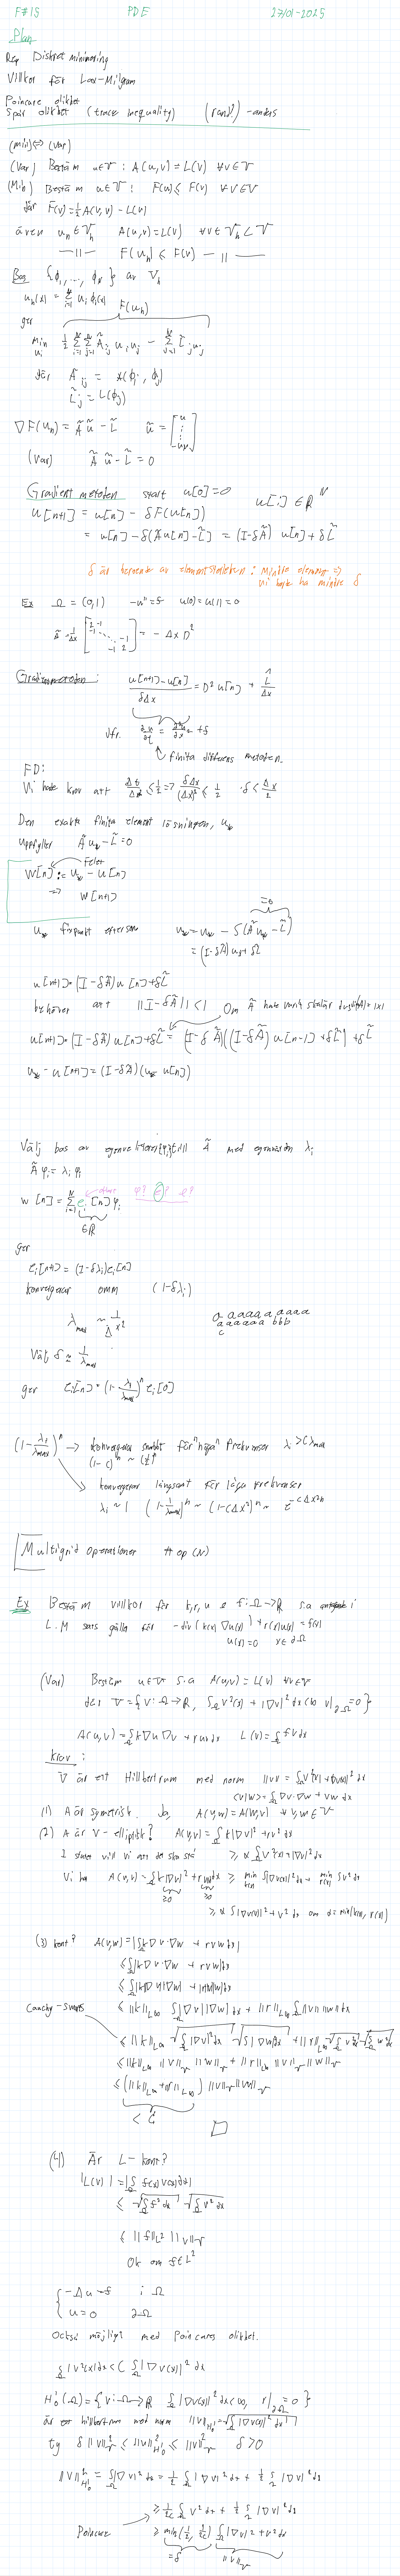 F#15 PDE 27/01-2025
Plan
Rep Diskret minimering
Villkor för Lax-Milgram
Poincare olikhet
Spår olikhet (trace inequality) (rand?) -anders
(Min) <=> (Var)
(Var) Bestäm u∈V : A(u,v) = L(v) ∀v∈V
(Min) Bestäm u∈V : F(u) ≤ F(v) ∀v∈V
där F(v) = ½A(v,v) - L(v)
även u_h ∈ V_h A(u,v) = L(v) ∀v∈V_h ⊂ V
—||— F(u_h) ≤ F(v) —||—
Bas {ϕ_1, ..., ϕ_N} av V_h
u_h(x) = Σ_{i=1}^N u_i ϕ_i(x) F(u_h)
ger
min_{u_i} ½ Σ_{i=1}^N Σ_{j=1}^N Ã_ij u_i u_j - Σ_{j=1}^N L̃_j u_j
där Ã_ij = A(ϕ_i, ϕ_j)
L̃_j = L(ϕ_j)
∇F(u_h) = Ã ũ - L̃ ũ = [u ⋮ u_N]
(Var) Ã ũ - L̃ = 0
Gradient metoden start u[0] = 0 u[i] ∈ R^N
u[n+1] = u[n] - δF(u[n])
= u[n] - δ(Ãu[n] - L̃) = (I-δÃ) u[n] + δL̃
δ är beroende av elementstorleken : Mindre element =>
vi bör ha mindre δ
Ex Ω = (0,1) -u'' = f u(0) = u(1) = 0
Ã = 1/Δx [2 -1 -1 ⋱ -1 -1 2] = -Δx D²
Gradientmetoden: (u[n+1] - u[n])/(δΔx) = D² u[n] + L̂/Δx
Jfr. ∂u/∂t = ∂²u/∂x² + f
finita differens metoden.
FD:
Vi hade krav att Δt/Δx² ≤ ½ => δΔx/(Δx)² ≤ ½ δ < Δx/2
Den exakta finita element lösningen, u_*
uppfyller Ã u_* - L̃ = 0
felet
W[n] := u_* - u[n]
=> W[n+1]
=0
u_* fixpunkt eftersom u_* = u_* - δ(Ãu_* - L̃)
= (I-δÃ) u_* + δL̃
u[n+1] = (I-δÃ) u[n] + δL̃
behöver att ||I-δÃ|| < 1 Om Ã hade varit skalär
u[n+1] = (I-δÃ) u[n] + δL̃ = (I-δÃ)((I-δÃ) u[n-1] + δL̃) + δL̃
u_* - u[n+1] = (I-δÃ)(u_* - u[n])
Välj bas av egenvektorer {φ_i} till Ã med egenvärden λ_i
Ã φ_i = λ_i φ_i
φ? ϵ? e?
w[n] = Σ_{i=1}^N e_i[n] φ_i
∈R
ger
e_i[n+1] = (1-δλ_i) e_i[n]
konvergerar omm (1-δλ_i)
λ_max ~ 1/Δx² a aaaaa a aaaa
aaaaaa bbb
c
Välj δ ≈ 1/λ_max
ger e_i[n] = (1 - λ_i/λ_max)^n e_i[0]
(1 - λ_i/λ_max)^n → konvergerar snabbt för "höga" frekvenser λ_i > Cλ_max
(1-c)^n ~ (½)^n
konvergerar långsamt för låga frekvenser
λ_i ~ 1 (1 - 1/λ_max)^n ~ (1-cΔx²)^n ~ e^{-cΔx²n}
Multigrid operationer # op (N)
Ex Bestäm villkor för k, r, u & f: Ω→R s.a i
L.M sats gäller för -div(k(x) ∇u(x)) + r(x)u(x) = f(x)
u(x) = 0 x∈∂Ω
(Var) Bestäm u∈V s.a A(u,v) = L(v) ∀v∈V
där V = {v: Ω→R, ∫_Ω v²(x) + |∇v|² dx < ∞, v|_∂Ω = 0}
A(u,v) = ∫_Ω k∇u∇v + ruv dx L(v) = ∫_Ω fv dx
krav :
V är ett Hilbertrum med norm ||v|| = ∫_Ω v²(x) + |∇v|² dx
<v,w> = ∫_Ω ∇v·∇w + vw dx
(1) A är symetrisk. Ja, A(v,w) = A(w,v) ∀v,w∈V
(2) A är V-elliptisk? A(v,v) = ∫_Ω k|∇v|² + rv² dx
I så fall vill vi att de ska stå ≥ α∫_Ω v²(x) + |∇v|² dx
Vi har A(v,v) = ∫_Ω k|∇v|² + rv² dx ≥ min k(x) ∫|∇v(x)|² dx + min r(x) ∫v² dx
≥0 ≥0
≥ α ∫|∇v(x)|² + v² dx om α = min(k(x), r(x))
(3) kont? A(v,w) = |∫_Ω k∇v·∇w + rvw dx|
≤ ∫_Ω |k∇v·∇w + rvw| dx
≤ ∫_Ω |k||∇v||∇w| + |r||v||w| dx
Cauchy-Swartz ≤ ||k||_L∞ ∫_Ω |∇v||∇w| dx + ||r||_L∞ ∫_Ω |v||w| dx
≤ ||k||_L∞ √(∫_Ω |∇v|² dx) √(∫|∇w|² dx) + ||r||_L∞ √(∫_Ω v² dx) √(∫_Ω w² dx)
≤ ||k||_L∞ ||v||_V ||w||_V + ||r||_L∞ ||v||_V ||w||_V
≤ (||k||_L∞ + ||r||_L∞) ||v||_V ||w||_V
< C
□
(4) Är L - kont?
|L(v)| = |∫_Ω f(x)v(x) dx|
≤ √(∫_Ω f² dx) √(∫_Ω v² dx)
≤ ||f||_L² ||v||_V
OK om f∈L²
{ -Δu = f i Ω
u = 0 ∂Ω
Också möjligt med Poincares olikhet.
∫_Ω |v²(x)| dx < C ∫_Ω |∇v(x)|² dx
H_0^1(Ω) = {v: Ω→R ∫_Ω |∇v(x)|² dx < ∞, v|_∂Ω = 0}
är ett hilbertrum med norm ||v||_{H_0^1} = √(∫_Ω |∇v(x)|² dx)
ty δ||v||_V² ≤ ||v||²_{H_0^1} ≤ ||v||_V² δ > 0
||v||²_{H_0^1} = ∫_Ω |∇v|² dx = ½∫_Ω |∇v|² dx + ½∫_Ω |∇v|² dx
≥ 1/2C ∫_Ω v² dx + ½∫_Ω |∇v|² dx
Poincare ≥ min(½, 1/2C) ∫_Ω |∇v|² + v² dx
=δ ||v||_V